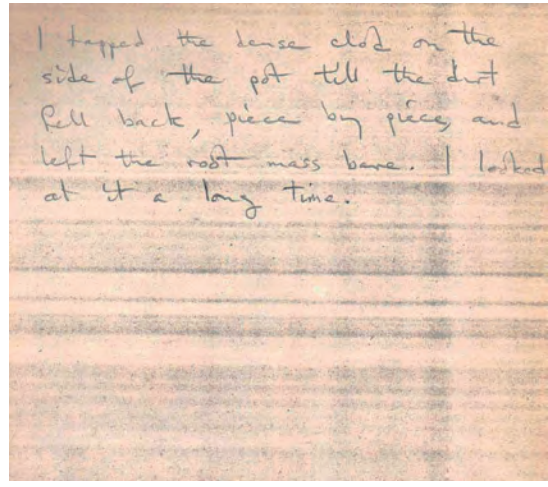 I tapped the dense clod on the
side of the pot till the dirt
fell back, piece by piece, and
left the root mass bare. I looked
at it a long time.